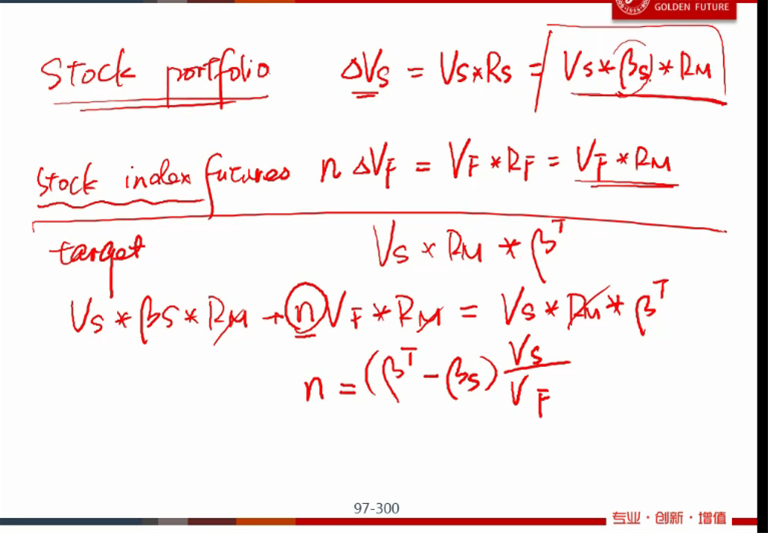 GOLDEN FUTURE
Stock portfolio ΔVs = Vs*Rs = Vs*βs*RM
Stock index futures n ΔVF = VF*RF = VF*RM
target Vs*RM*β^T
Vs*βs*RM + n VF*RM = Vs*RM*β^T
n = (β^T - βs) Vs/VF
97-300
专业·创新·增值